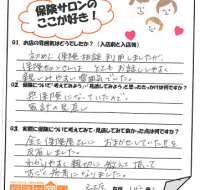 保険サロンの
ここが好き！
Q1. お店の雰囲気はどうでしたか？（入店前と入店後）
初めて保険相談利用しましたが、
保険サロンさんは とてもお話ししやすく
親しみやすい雰囲気でした。
Q2. 保険について「考えてみよう」「見直してみよう」と思ったきっかけは何ですか？
無保険になっていたので。
家計の見直し
Q3. 実際に保険について考えてみて・見直してみて良かった点は何ですか？
全て保険屋さんに おまかせしていた事を
反省しました。
わかりやすく親切に教えて頂いて